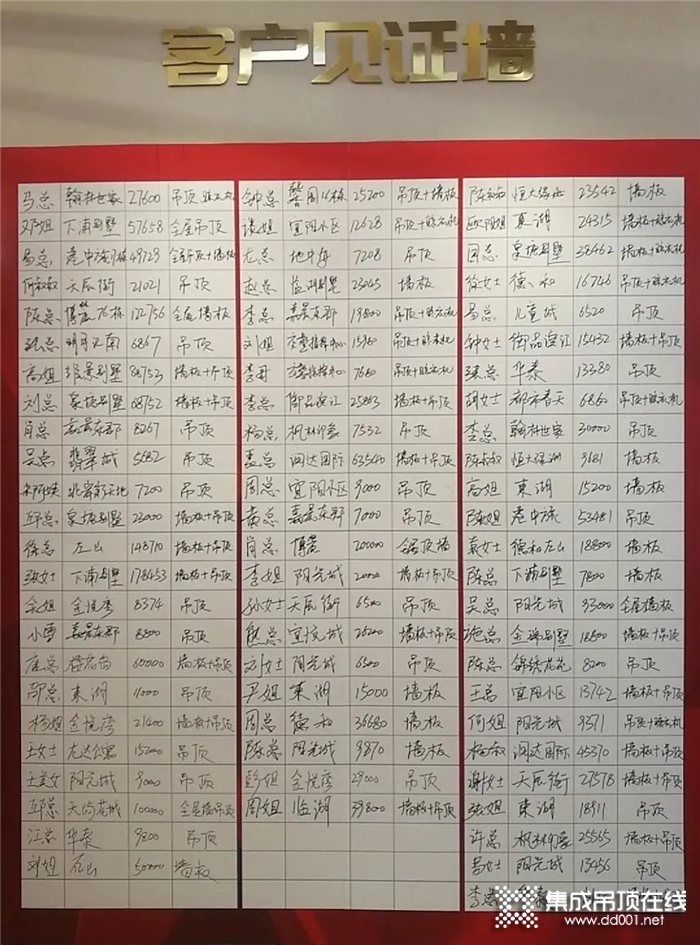 客户见证墙
马总 翰林世家 27600 吊顶
邓姐 下浦别墅 57658 全屋吊顶
易总 49729
何叔叔 天辰街 21021 吊顶
陈总 76栋 122756 全屋墙板
张总 6867 吊顶
高姐 别墅 88753 墙板+吊顶
刘总 泉塘别墅 68752 墙板+吊顶
肖总 嘉景东郡 8267 吊顶
吴总 翡翠城 5682 吊顶
7200 吊顶
邱总 泉塘别墅 23000 墙板+吊顶
徐总 左山 148710 墙板+吊顶
张女士 下浦别墅 178453 墙板+吊顶
余姐 金悦湾 8374 吊顶
小雪 嘉景东郡 8800 吊顶
唐总 60000 墙板+吊顶
邵总 東湖 11000 吊顶
杨姐 金悦湾 21400 墙板+吊顶
王女士 龙达公寓 15200 吊顶
王美女 阳光城 9000 吊顶
邱总 天尚龙城 100000
江总 华泰 9800 吊顶
刘姐 左山 50000 墙板
钟总 馨园 栋 25200 吊顶+墙板
谌姐 宜阳小区 12628 吊顶+晾衣机
尤总 地中海 7208 吊顶
赵总 临湖别墅 23045 墙板
李总 嘉景东郡 19800 吊顶+晾衣机
刘姐 指挥中心 15960 吊顶+晾衣机
李哥 指挥中心 7680 吊顶+晾衣机
李总 御品滨江 25863 墙板+吊顶
杨总 枫林印象 7532 吊顶
孟总 润达国际 63540 墙板+吊顶
周总 宜阳小区 9000 吊顶
黄总 嘉景东郡 7000 吊顶
肖总 博蓝 200000
李姐 阳光城 20000 墙板+吊顶
孙女士 天辰街 6500 吊顶
熊总 宜悦城 26200 墙板+吊顶
刘女士 阳光城 6500 吊顶
尹姐 東湖 15000 墙板
周总 德和 36680 墙板
陈总 阳光城 9870 墙板
彭姐 金悦湾 29000 吊顶
周姐 临湖 39800 墙板+吊顶
陈叔叔 恒大绿洲 23542 墙板
欧阳姐 東湖 24315 墙板+晾衣机
周总 泉塘别墅 38462 墙板+晾衣机
徐女士 德和 16746 吊顶+晾衣机
易总 儿童城 6520 吊顶
钟女士 御品滨江 15432 墙板+吊顶
陈总 华泰 13380 吊顶
胡女士 都市春天 6860 吊顶+晾衣机
李总 翰林世家 30000 吊顶
陈叔叔 恒大绿洲 9681 墙板
高姐 東湖 15200 墙板
陈姐 53481 吊顶
袁女士 德和左山 18800 墙板
陈总 下浦别墅 7800 墙板
吴总 阳光城 33000 全屋墙板
施总 金瑞别墅 18500 墙板+吊顶
陈总 锦绣龙苑 8200 吊顶
王总 宜阳小区 13742 墙板+吊顶
何姐 阳光城 9371 吊顶+晾衣机
杨叔 润达国际 45370 墙板+吊顶
谢女士 天辰街 27578 墙板+吊顶
张姐 東湖 18911 吊顶
许总 枫林印象 25565 墙板+吊顶
吕女士 阳光城 13456 吊顶
李总
集成吊顶在线
www.dd001.net